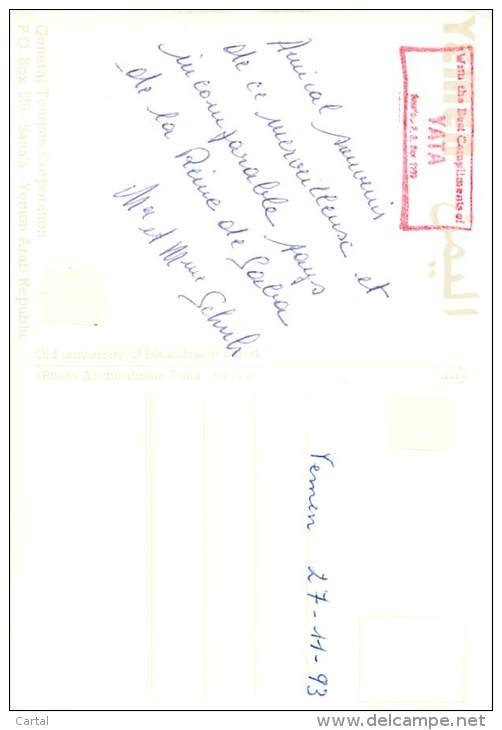 Yemen
اليمن
With the Best Compliments of
YATA
Amical souvenir
de ce merveilleuse et
incomparable pays
de la Reine de Saba
Mr et Mme Schuh
General Tourism Corporation
P.O. Box 129 Sana'a Yemen Arab Republic
Old university of
(Photo Abdurahman
Yemen 27-11-93
Cartal
www.delcampe.net